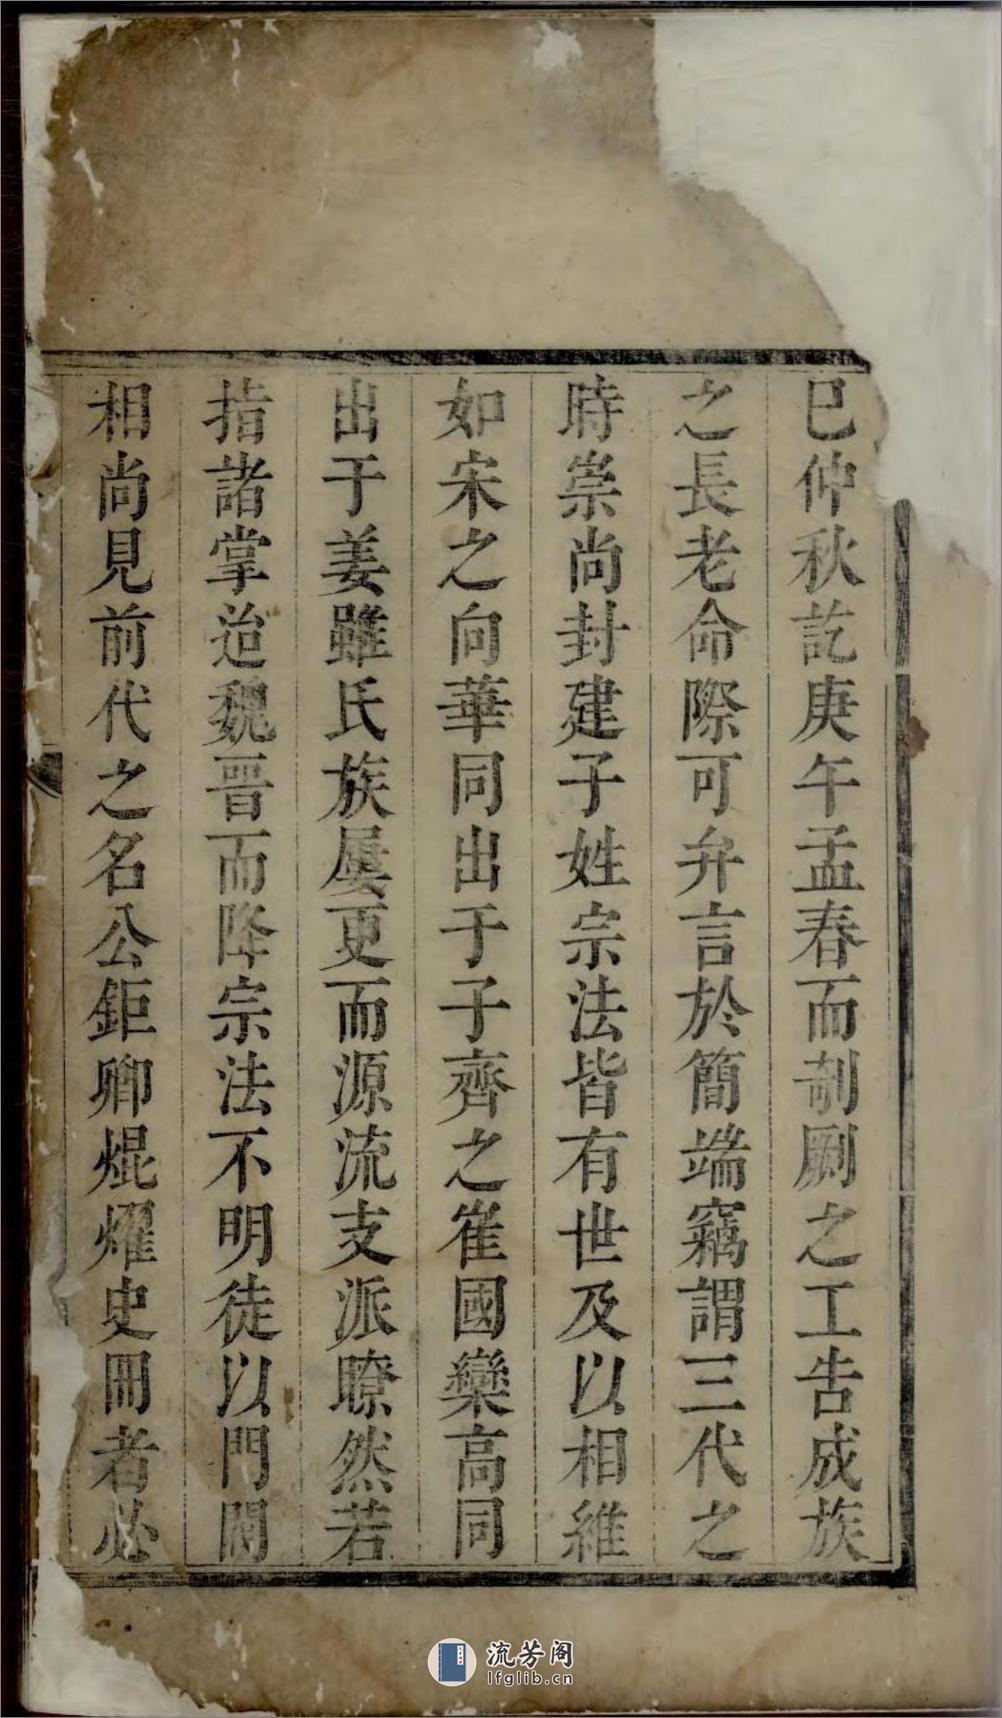 巳仲秋訖庚午孟春而剞劂之工告成族
之長老命際可弁言於簡端竊謂三代之
時崇尚封建子姓宗法皆有世及以相維
如宋之向華同出于子齊之崔國欒高同
出于姜雖氏族屢更而源流支派瞭然若
指諸掌迨魏晋而降宗法不明徒以門閥
相尚見前代之名公鉅卿焜燿史冊者必
流芳阁
lfglib.cn